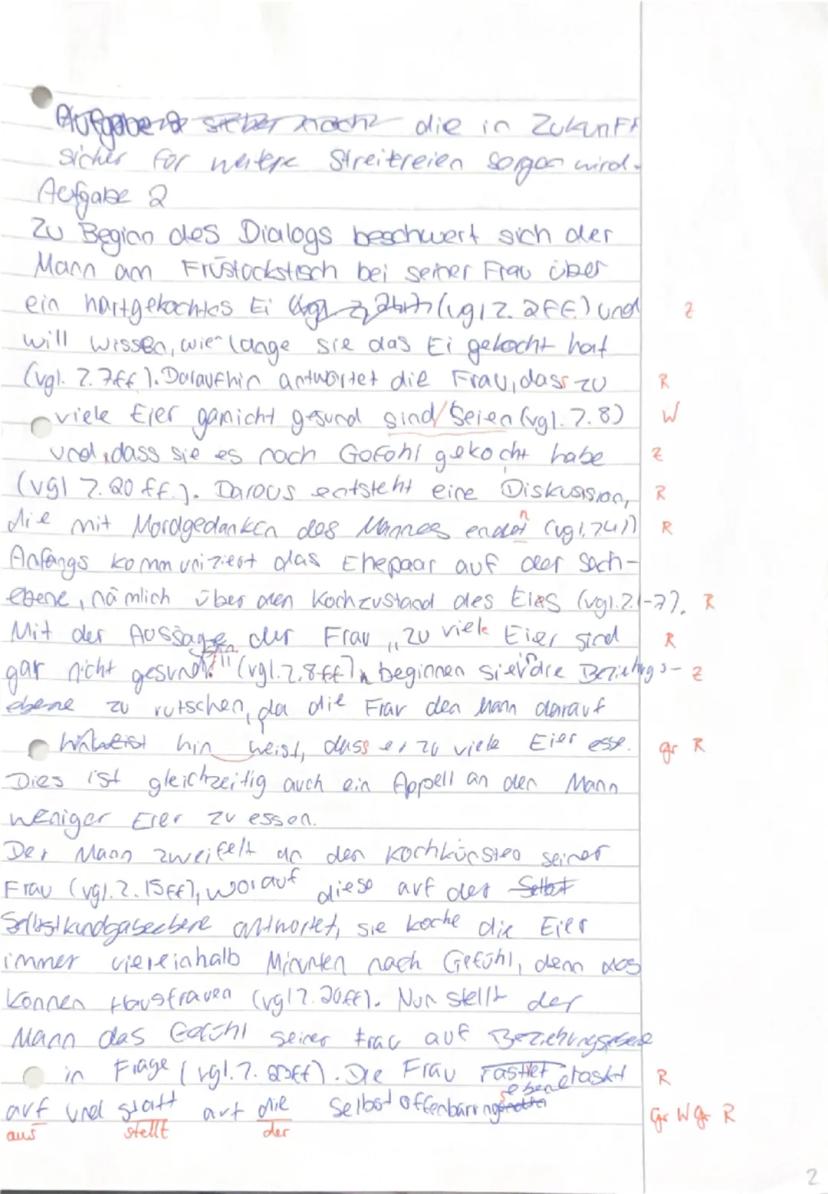 die in Zukunft
sicher für weitere Streitereien sorgen wird.
Aufgabe 2
Zu Beginn des Dialogs beschwert sich der
Mann am Früstückstisch bei seiner Frau über
ein hartgekochtes Ei (vgl Z. 2ff) und Z
will wissen, wie lange sie das Ei gekocht hat
(vgl. Z. 7ff). Daraufhin antwortet die Frau, dass zu R
viele Eier garnicht gesund sind/seien (vgl. Z. 8) W
und, dass sie es nach Gefühl gekocht habe Z
(vgl Z. 20 ff.). Daraus entsteht eine Diskussion, R
die mit Mordgedanken des Mannes endet (vgl. Z41) R
Anfangs kommuniziert das Ehepaar auf der Sach-
ebene, nämlich über den Kochzustand des Eies (vgl. Z. 1-7). R
Mit der Aussage der Frau „zu viele Eier sind R
gar nicht gesund!" (vgl. Z. 8ff) beginnen sie die Beziehungs- Z
ebene zu rutschen, da die Frau den Mann darauf
hin weist, dass er zu viele Eier esse. gr R
Dies ist gleichzeitig auch ein Appell an den Mann
weniger Eier zu essen.
Der Mann zweifelt an den Kochkünsten seiner
Frau (vgl. Z. 15ff), worauf diese auf der
Selbstkundgabeebene antwortet, sie koche die Eier
immer viereinhalb Minuten nach Gefühl, denn das
können Hausfrauen (vgl Z. 20ff). Nun stellt der
Mann das Gefühl seiner Frau auf Beziehungsebene
in Frage (vgl. Z. 22ff). Die Frau rastet R
auf und statt auf die Selbstoffenbarungsebene Gr W Gr R
aus stellt der
2